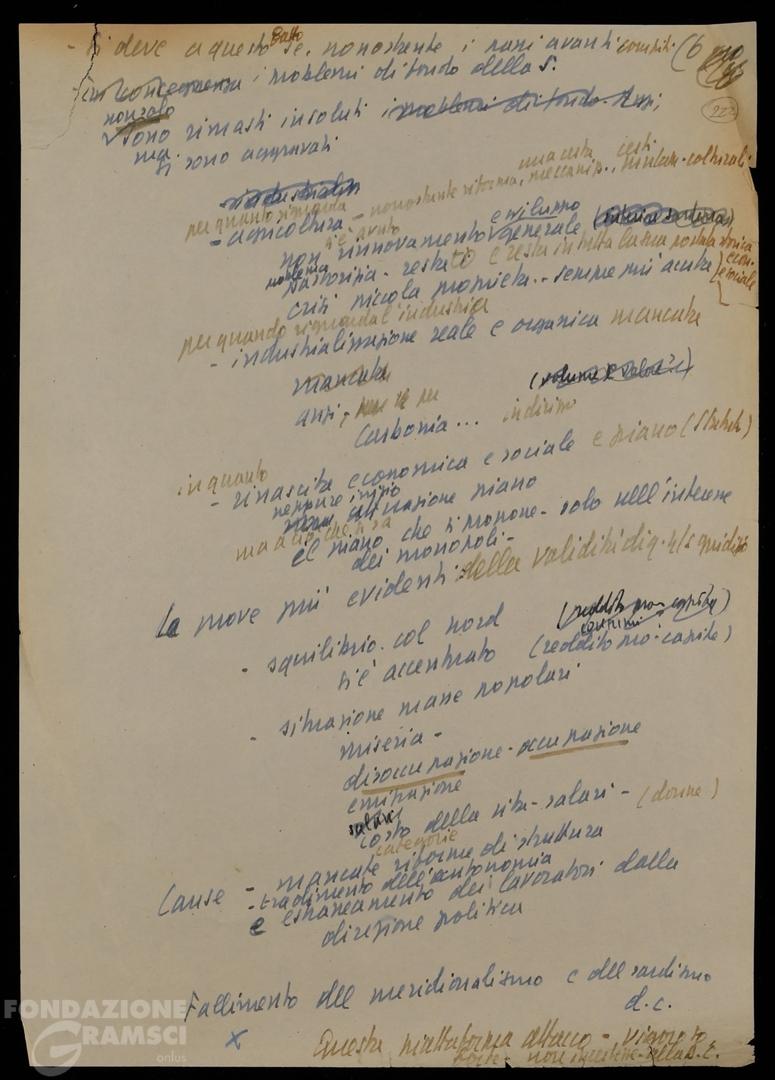 - si deve a questo fatto se, nonostante i passi avanti compiuti (6
in conseguenza i problemi di fondo della S.
222
sono rimasti insoluti i problemi di fondo. Anzi,
ma si sono aggravati
industrialis
per quanto riguarda - nonostante riforma, meccanizz.,
- agricoltura
non si è avuto rinnovamento e sviluppo generale
problema pastorizia - resta e resta in tutta la sua portata storica econ. e sociale
crisi piccola proprietà - sempre più acuta
per quando riguarda l'industria
- industrializzazione reale e organica mancata
mancata (volume e valore)
anzi,
Carbonia... indirizzo
in quanto
- rinascita economica e sociale e piano
neppure inizio
attuazione piano
ma a ciò che si fa
e il piano che si propone - solo nell'interesse
dei monopoli -
Le prove più evidenti: della validità di q.
(reddito pro-capite)
- squilibrio col nord consumi
si è accentuato (reddito pro-capite)
- situazione masse popolari
miseria -
disoccupazione - occupazione
emigrazione
salari
costo della vita - salari - (donne)
categorie
Cause - mancate riforme di struttura
- tradimento dell'autonomia
e estraneamento dei lavoratori dalla
direzione politica
Fallimento del meridionalismo e del sardismo
d.c.
x Questa piattaforma attacco - vigoroso
forte - della D.C.
FONDAZIONE
GRAMSCI
onlus